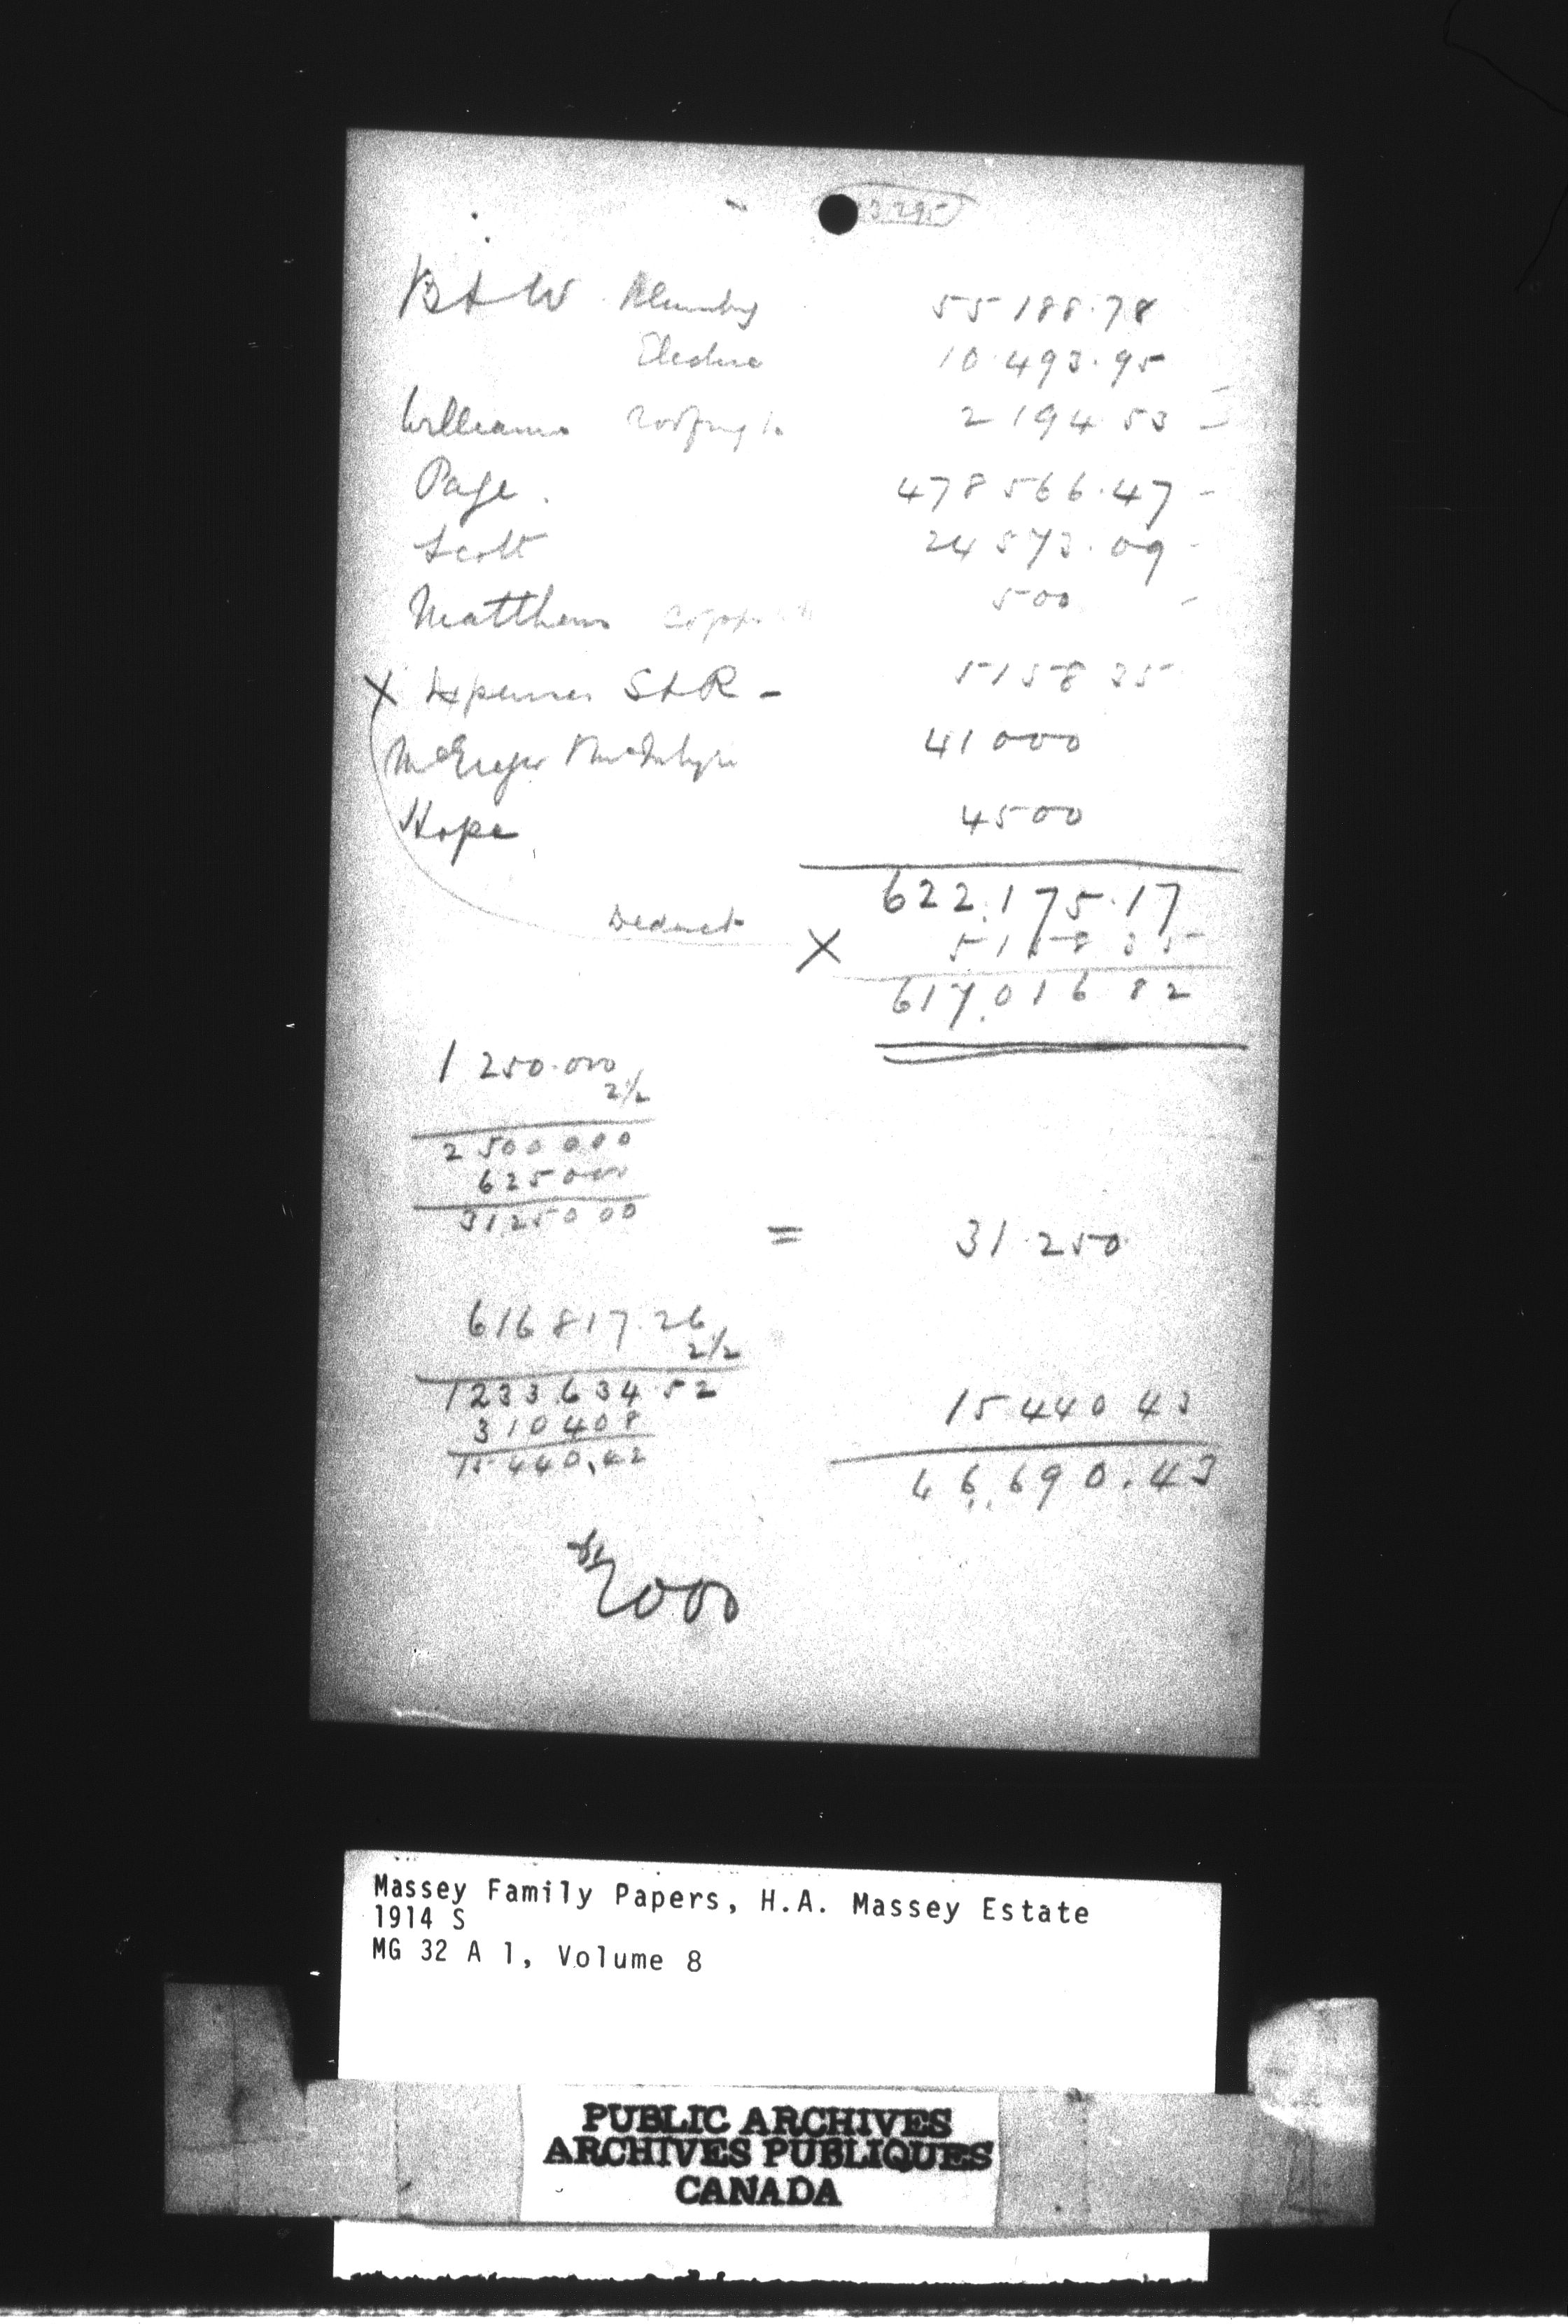 3295
B & W Plumbing 55188.78
Electric 10.493.95
Williams Roofing 2194.53 -
Page. 478566.47 -
Scott 24573.09 -
Matthews 500 -
X Expenses S & R - 5158 35
McGregor McIntyre 41000
Hope 4500
622.175.17
Deduct X 5158 35
617.016 82
1 250.000
2 1/2
2 500 000
625000
3125000 = 31.250
616817.26
2 1/2
1233.634.52
310408
15440.42
15 440 43
46.690.43
$2000
Massey Family Papers, H.A. Massey Estate
1914 S
MG 32 A 1, Volume 8
PUBLIC ARCHIVES
ARCHIVES PUBLIQUES
CANADA